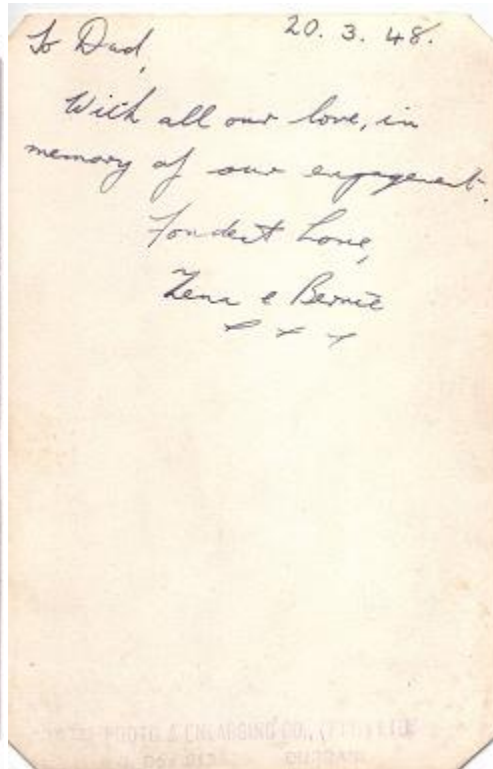 20. 3. 48.
To Dad,
With all our love, in
memory of our engagement.
Fondest Love,
Zena & Bernie
x x x
PHOTO & ENLARGING CO.